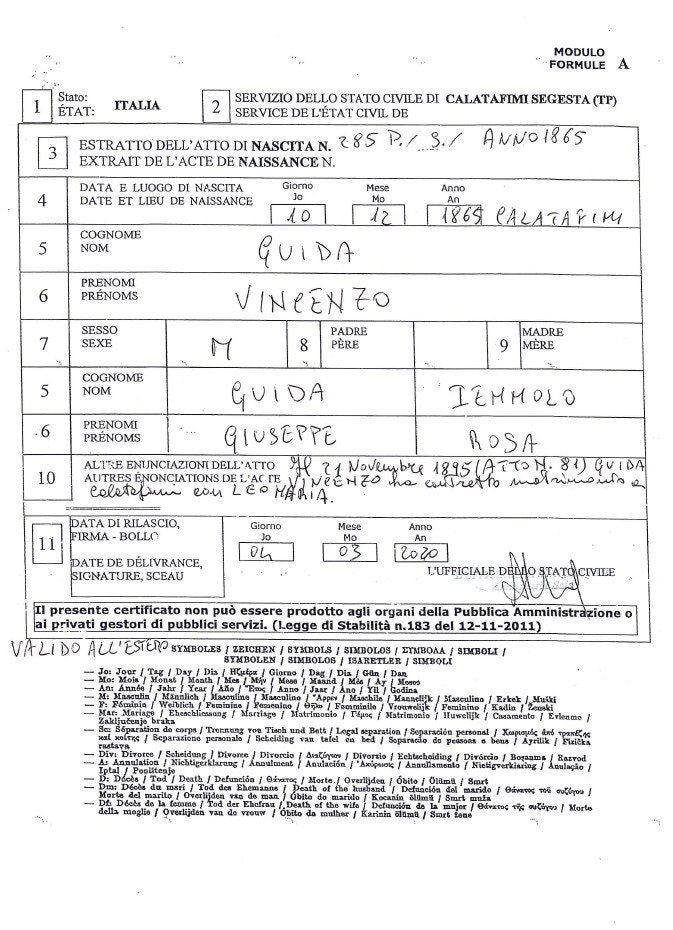 MODULO
FORMULE A
1 Stato: ITALIA
ÉTAT:
2 SERVIZIO DELLO STATO CIVILE DI CALATAFIMI SEGESTA (TP)
SERVICE DE L'ÉTAT CIVIL DE
3 ESTRATTO DELL'ATTO DI NASCITA N. 285 P./ S./ ANNO 1865
EXTRAIT DE L'ACTE DE NAISSANCE N.
4 DATA E LUOGO DI NASCITA
DATE ET LIEU DE NAISSANCE
Giorno Mese Anno
Jo Mo An
10 12 1865 CALATAFIMI
5 COGNOME
NOM
GUIDA
6 PRENOMI
PRÉNOMS
VINCENZO
7 SESSO
SEXE
M
8 PADRE
PÈRE
9 MADRE
MÈRE
5 COGNOME
NOM
GUIDA IEMMOLO
6 PRENOMI
PRÉNOMS
GIUSEPPE ROSA
10 ALTRE ENUNCIAZIONI DELL'ATTO Il 21 Novembre 1895 (ATTO N. 81) GUIDA
AUTRES ÉNONCIATIONS DE L'ACTE VINCENZO ha contratto matrimonio a
Calatafimi con LEO MARIA.
11 DATA DI RILASCIO,
FIRMA - BOLLO
DATE DE DÉLIVRANCE,
SIGNATURE, SCEAU
Giorno Mese Anno
Jo Mo An
04 03 2020
L'UFFICIALE DELLO STATO CIVILE
Il presente certificato non può essere prodotto agli organi della Pubblica Amministrazione o
ai privati gestori di pubblici servizi. (Legge di Stabilità n.183 del 12-11-2011)
VALIDO ALL'ESTERO SYMBOLES / ZEICHEN / SYMBOLS / SIMBOLOS / ΣΥΜΒΟΛΑ / SIMBOLI /
SYMBOLEN / SIMBOLOS / ISARETLER / SIMBOLI
— Jo: Jour / Tag / Day / Dia / Ημέρα / Giorno / Dag / Dia / Gün / Dan
— Mo: Mois / Monat / Month / Mes / Μήν / Mese / Maand / Mês / Ay / Mesec
— An: Année / Jahr / Year / Año / Έτος / Anno / Jaar / Ano / Yil / Godina
— M: Masculin / Männlich / Masculine / Masculino / Άρρεν / Maschile / Mannelijk / Masculino / Erkek / Muški
— F: Féminin / Weiblich / Feminine / Femenino / Θήλυ / Femminile / Vrouwelijk / Feminino / Kadin / Ženski
— Mar: Mariage / Eheschliessung / Marriage / Matrimonio / Γάμος / Matrimonio / Huwelijk / Casamento / Evlenme /
Zaključenje braka
— Sc: Séparation de corps / Trennung von Tisch und Bett / Legal separation / Separación personal / Χωρισμός ἀπό τραπέζης
καί κοίτης / Separazione personale / Scheiding van tafel en bed / Separação de pessoas e bens / Ayrilik / Fizička
rastava
— Div: Divorce / Scheidung / Divorce / Divorcio / Διαζύγιον / Divorzio / Echtscheiding / Divórcio / Boşanma / Razvod
— A: Annulation / Nichtigerklarung / Annulment / Anulación / Ἀκύρωσις / Annullamento / Nietigverklaring / Anulação /
Iptal / Poništenje
— D: Décès / Tod / Death / Defunción / Θάνατος / Morte / Overlijden / Óbito / Ölümü / Smrt
— Dm: Décès du mari / Tod des Ehemanne / Death of the husband / Defunción del marido / Θάνατος τοῦ συζύγου /
Morte del marito / Overlijden van de man / Óbito do marido / Kocanin ölümü / Smrt muža
— Df: Décès de la femme / Tod der Ehefrau / Death of the wife / Defunción de la mujer / Θάνατος τῆς συζύγου / Morte
della moglie / Overlijden van de vrouw / Óbito da mulher / Karinin ölümü / Smrt žene